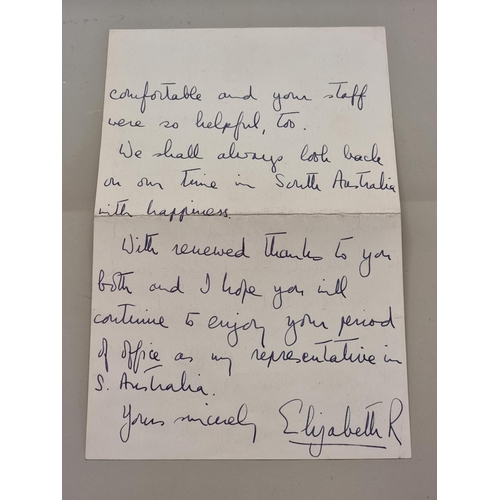 comfortable and your staff
were so helpful, too.
We shall always look back
on our time in South Australia
with happiness.
With renewed thanks to you
both and I hope you will
continue to enjoy your period
of office as my representative in
S. Australia.
Yours sincerely Elizabeth R